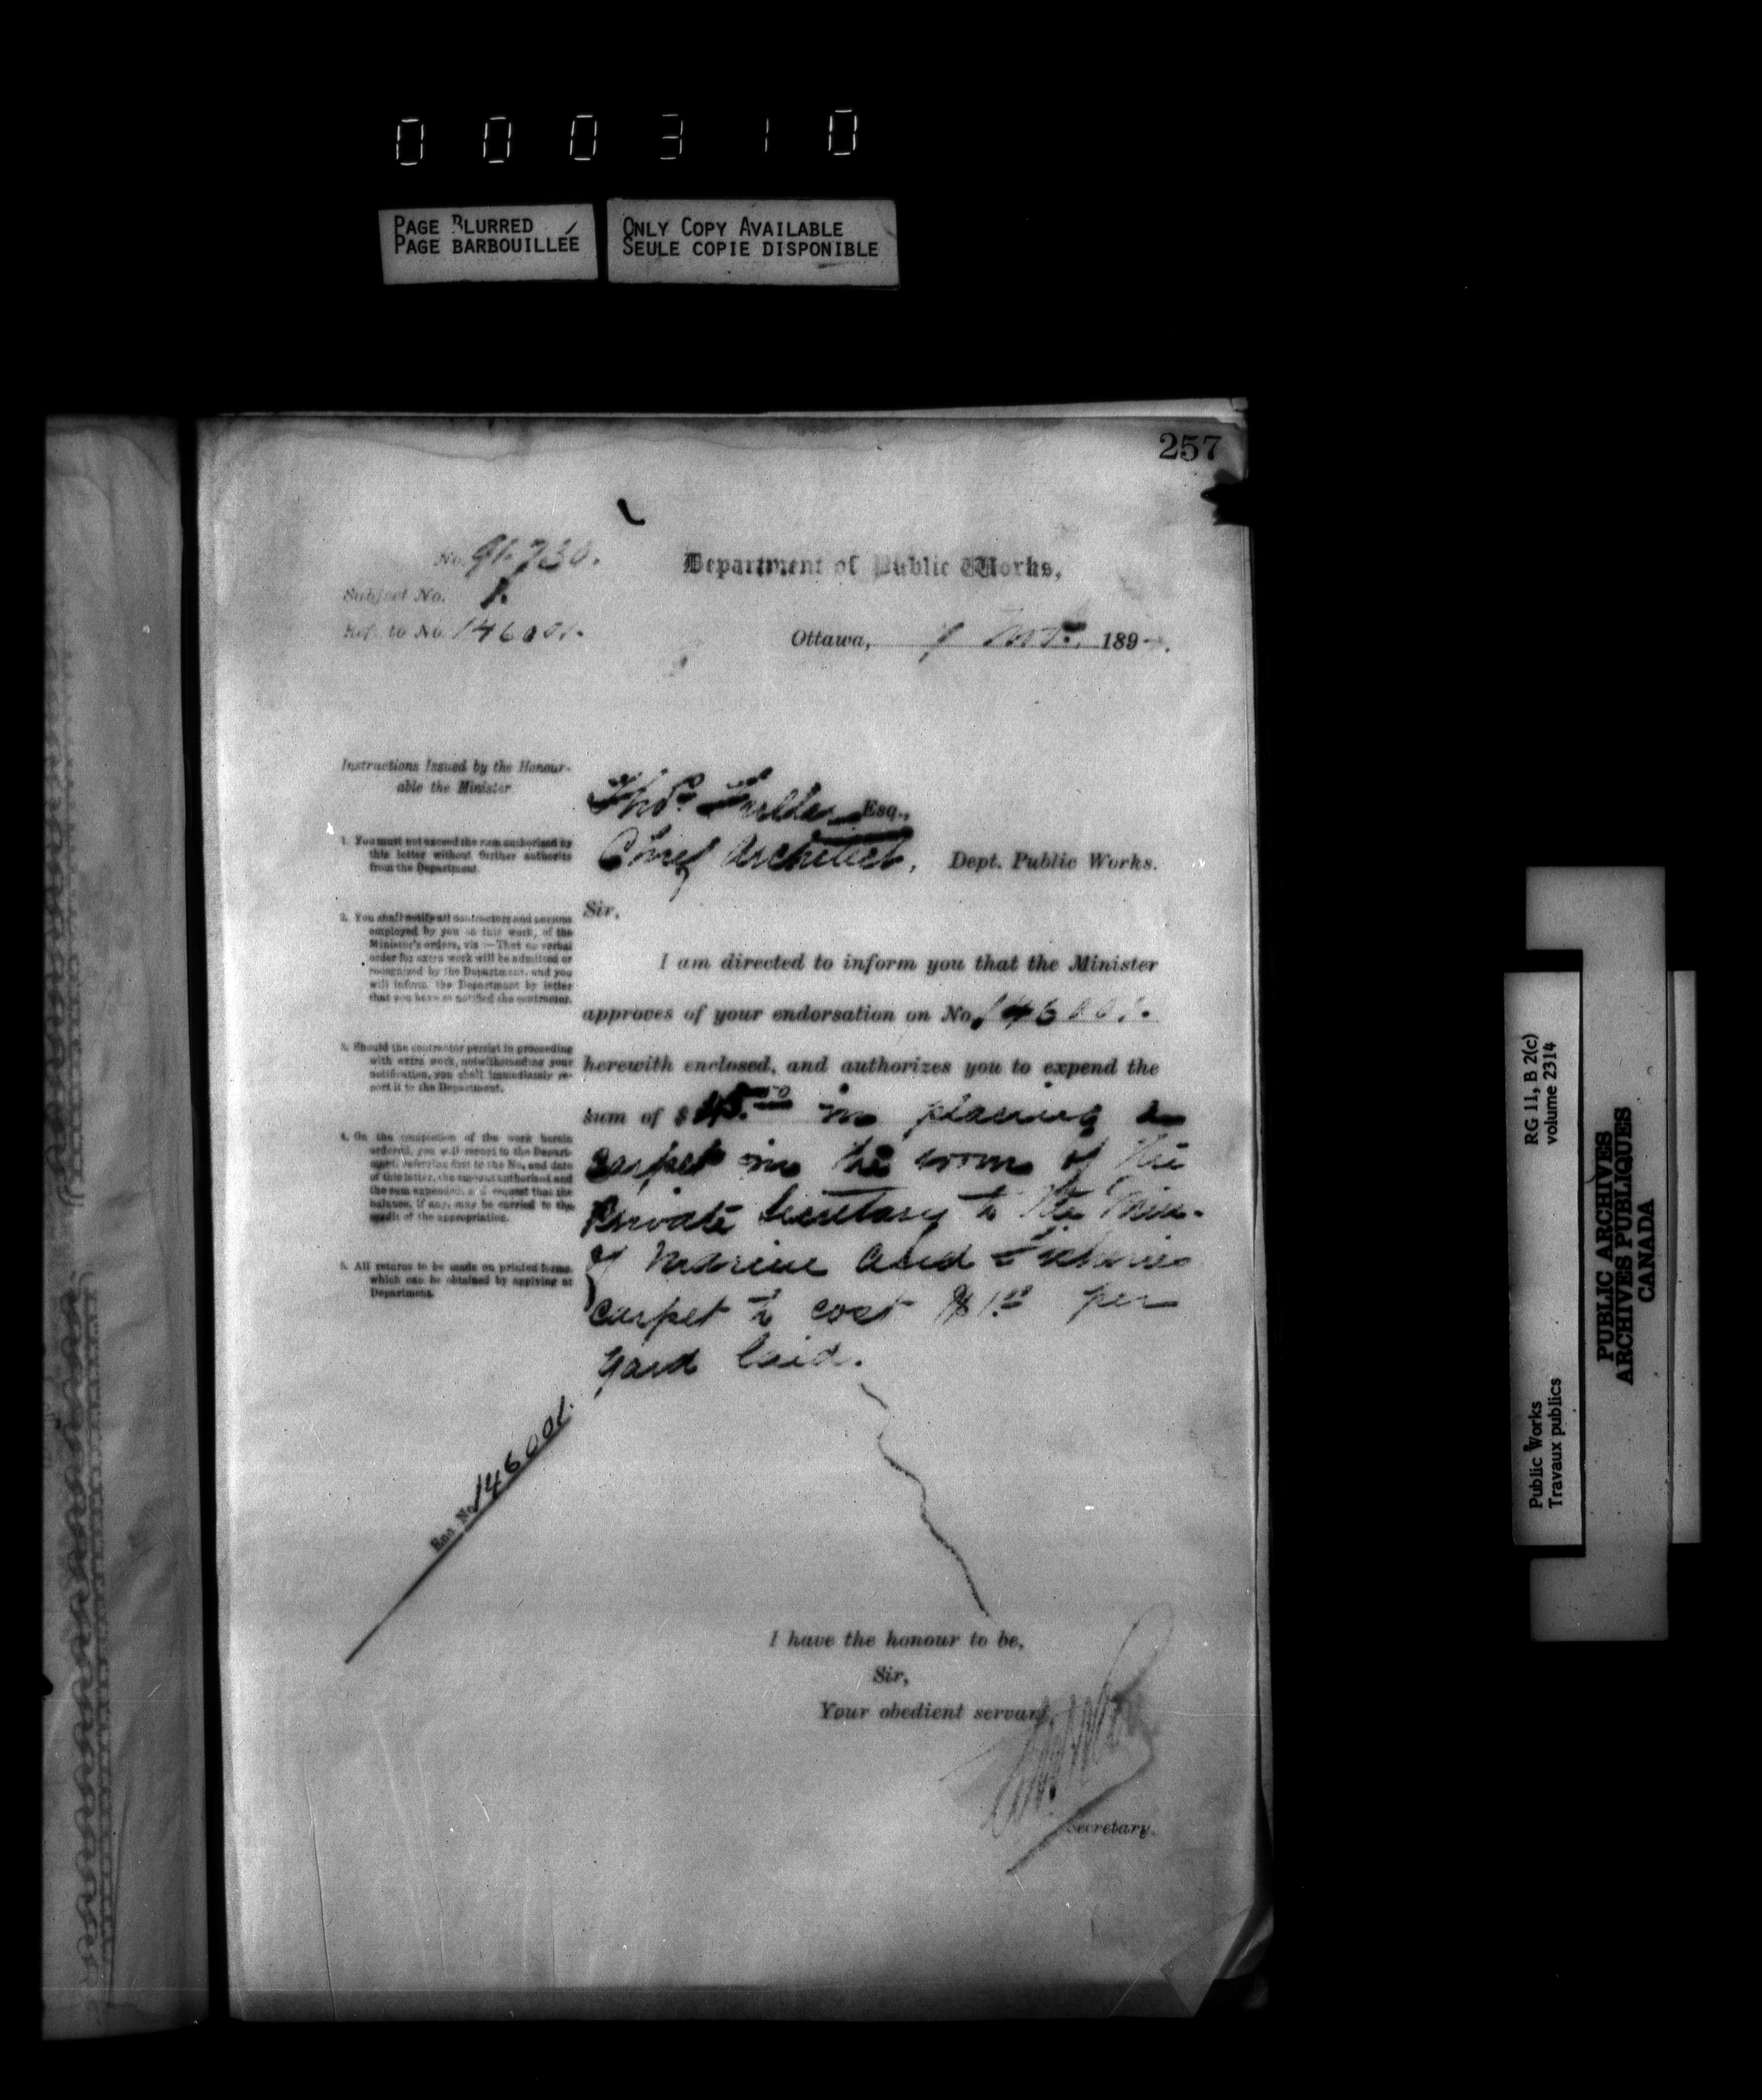 000310
PAGE BLURRED
PAGE BARBOUILLÉE
ONLY COPY AVAILABLE
SEULE COPIE DISPONIBLE
257
No.
Subject No. 1.
Ref. to No. 146001.
Department of Public Works,
Ottawa, 189
Instructions Issued by the Honour-
able the Minister.
1. You must not exceed the sum authorized by
this letter without further authority
from the Department.
2. You shall notify all contractors and persons
employed by you on this work, of the
Minister's orders, viz :—That no verbal
order for extra work will be admitted or
recognized by the Department, and you
will inform the Department by letter
that you have so notified the contractor.
3. Should the contractor persist in proceeding
with extra work, notwithstanding your
notification, you shall immediately re-
port it to the Department.
4. On the completion of the work herein
ordered, you will report to the Depart-
ment, referring first to the No. and date
of this letter, the amount authorized and
the sum expended, and request that the
balance, if any, may be carried to the
credit of the appropriation.
5. All returns to be made on printed forms,
which can be obtained by applying at
Department.
Thos. Fuller Esq.,
Chief Architect, Dept. Public Works.
Sir,
I am directed to inform you that the Minister
approves of your endorsation on No. 146001.
herewith enclosed, and authorizes you to expend the
sum of $ in placing a
carpet in the room of the
Private Secretary to the Min.
of Marine and Fisheries
carpet to cost $1.00 per
yard laid.
Enc. No. 146001.
I have the honour to be,
Sir,
Your obedient servant,
Secretary.
RG 11, B 2(c)
volume 2314
Public Works
Travaux publics
PUBLIC ARCHIVES
ARCHIVES PUBLIQUES
CANADA